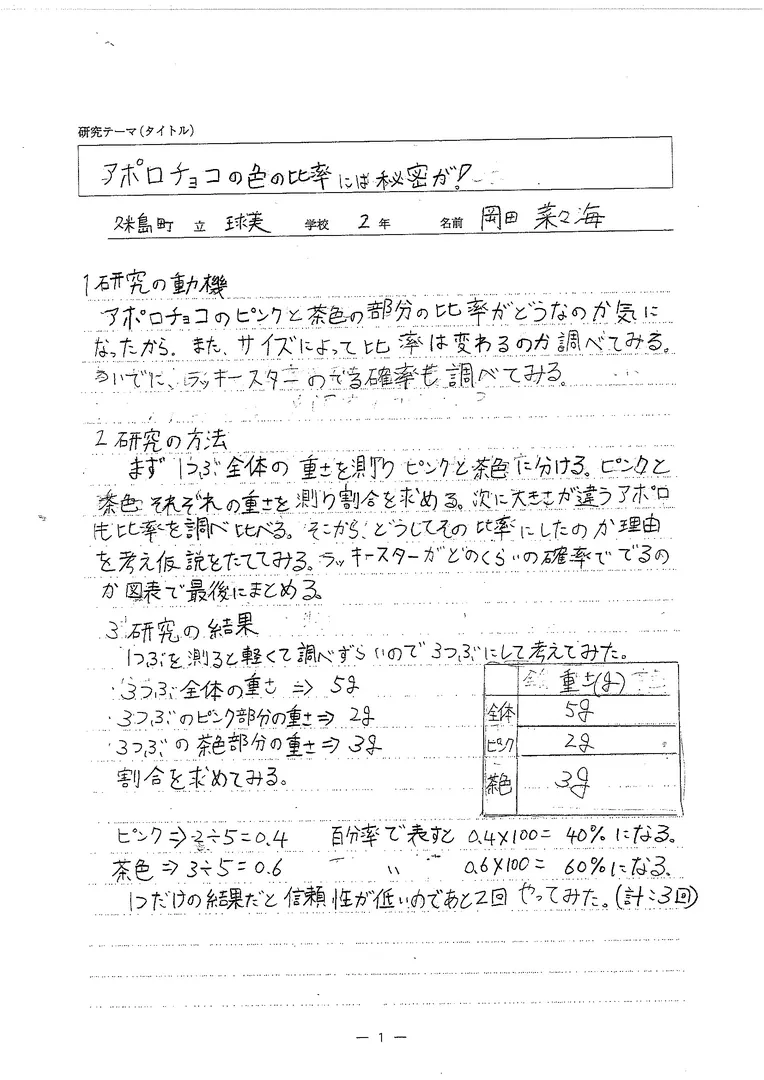 研究テーマ(タイトル)
アポロチョコの色の比率には秘密が!
久米島町 立 球美 学校 2 年 名前 岡田 菜々海
1 研究の動機
アポロチョコのピンクと茶色の部分の比率がどうなのか気に
なったから。また、サイズによって比率は変わるのか調べてみる。
ついでに、ラッキースターのでる確率も調べてみる。
2 研究の方法
まず 1つぶ全体の重さを測り ピンクと茶色に分ける。ピンクと
茶色それぞれの重さを測り割合を求める。次に大きさが違うアポロ
も比率を調べ比べる。そこから、どうしてその比率にしたのか理由
を考え仮説をたててみる。ラッキースターがどのくらいの確率ででるの
か図表で最後にまとめる。
3 研究の結果
1つぶを測ると軽くて調べずらいので3つぶにして考えてみた。
・3つぶ全体の重さ ⇒ 5g
・3つぶのピンク部分の重さ⇒ 2g
・3つぶの茶色部分の重さ⇒ 3g
割合を求めてみる。
重さ(g)
全体 5g
ピンク 2g
茶色 3g
ピンク⇒2÷5=0.4 百分率で表すと 0.4×100= 40%になる。
茶色⇒3÷5=0.6 〃 0.6×100= 60%になる、
1つだけの結果だと信頼性が低いのであと2回やってみた。(計:3回)
— 1 —